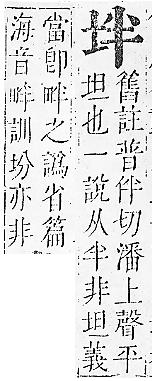 坢舊註普伴切潘上聲平
坦也一說从半非坦義
當卽畔之譌省篇
海音畔訓坋亦非